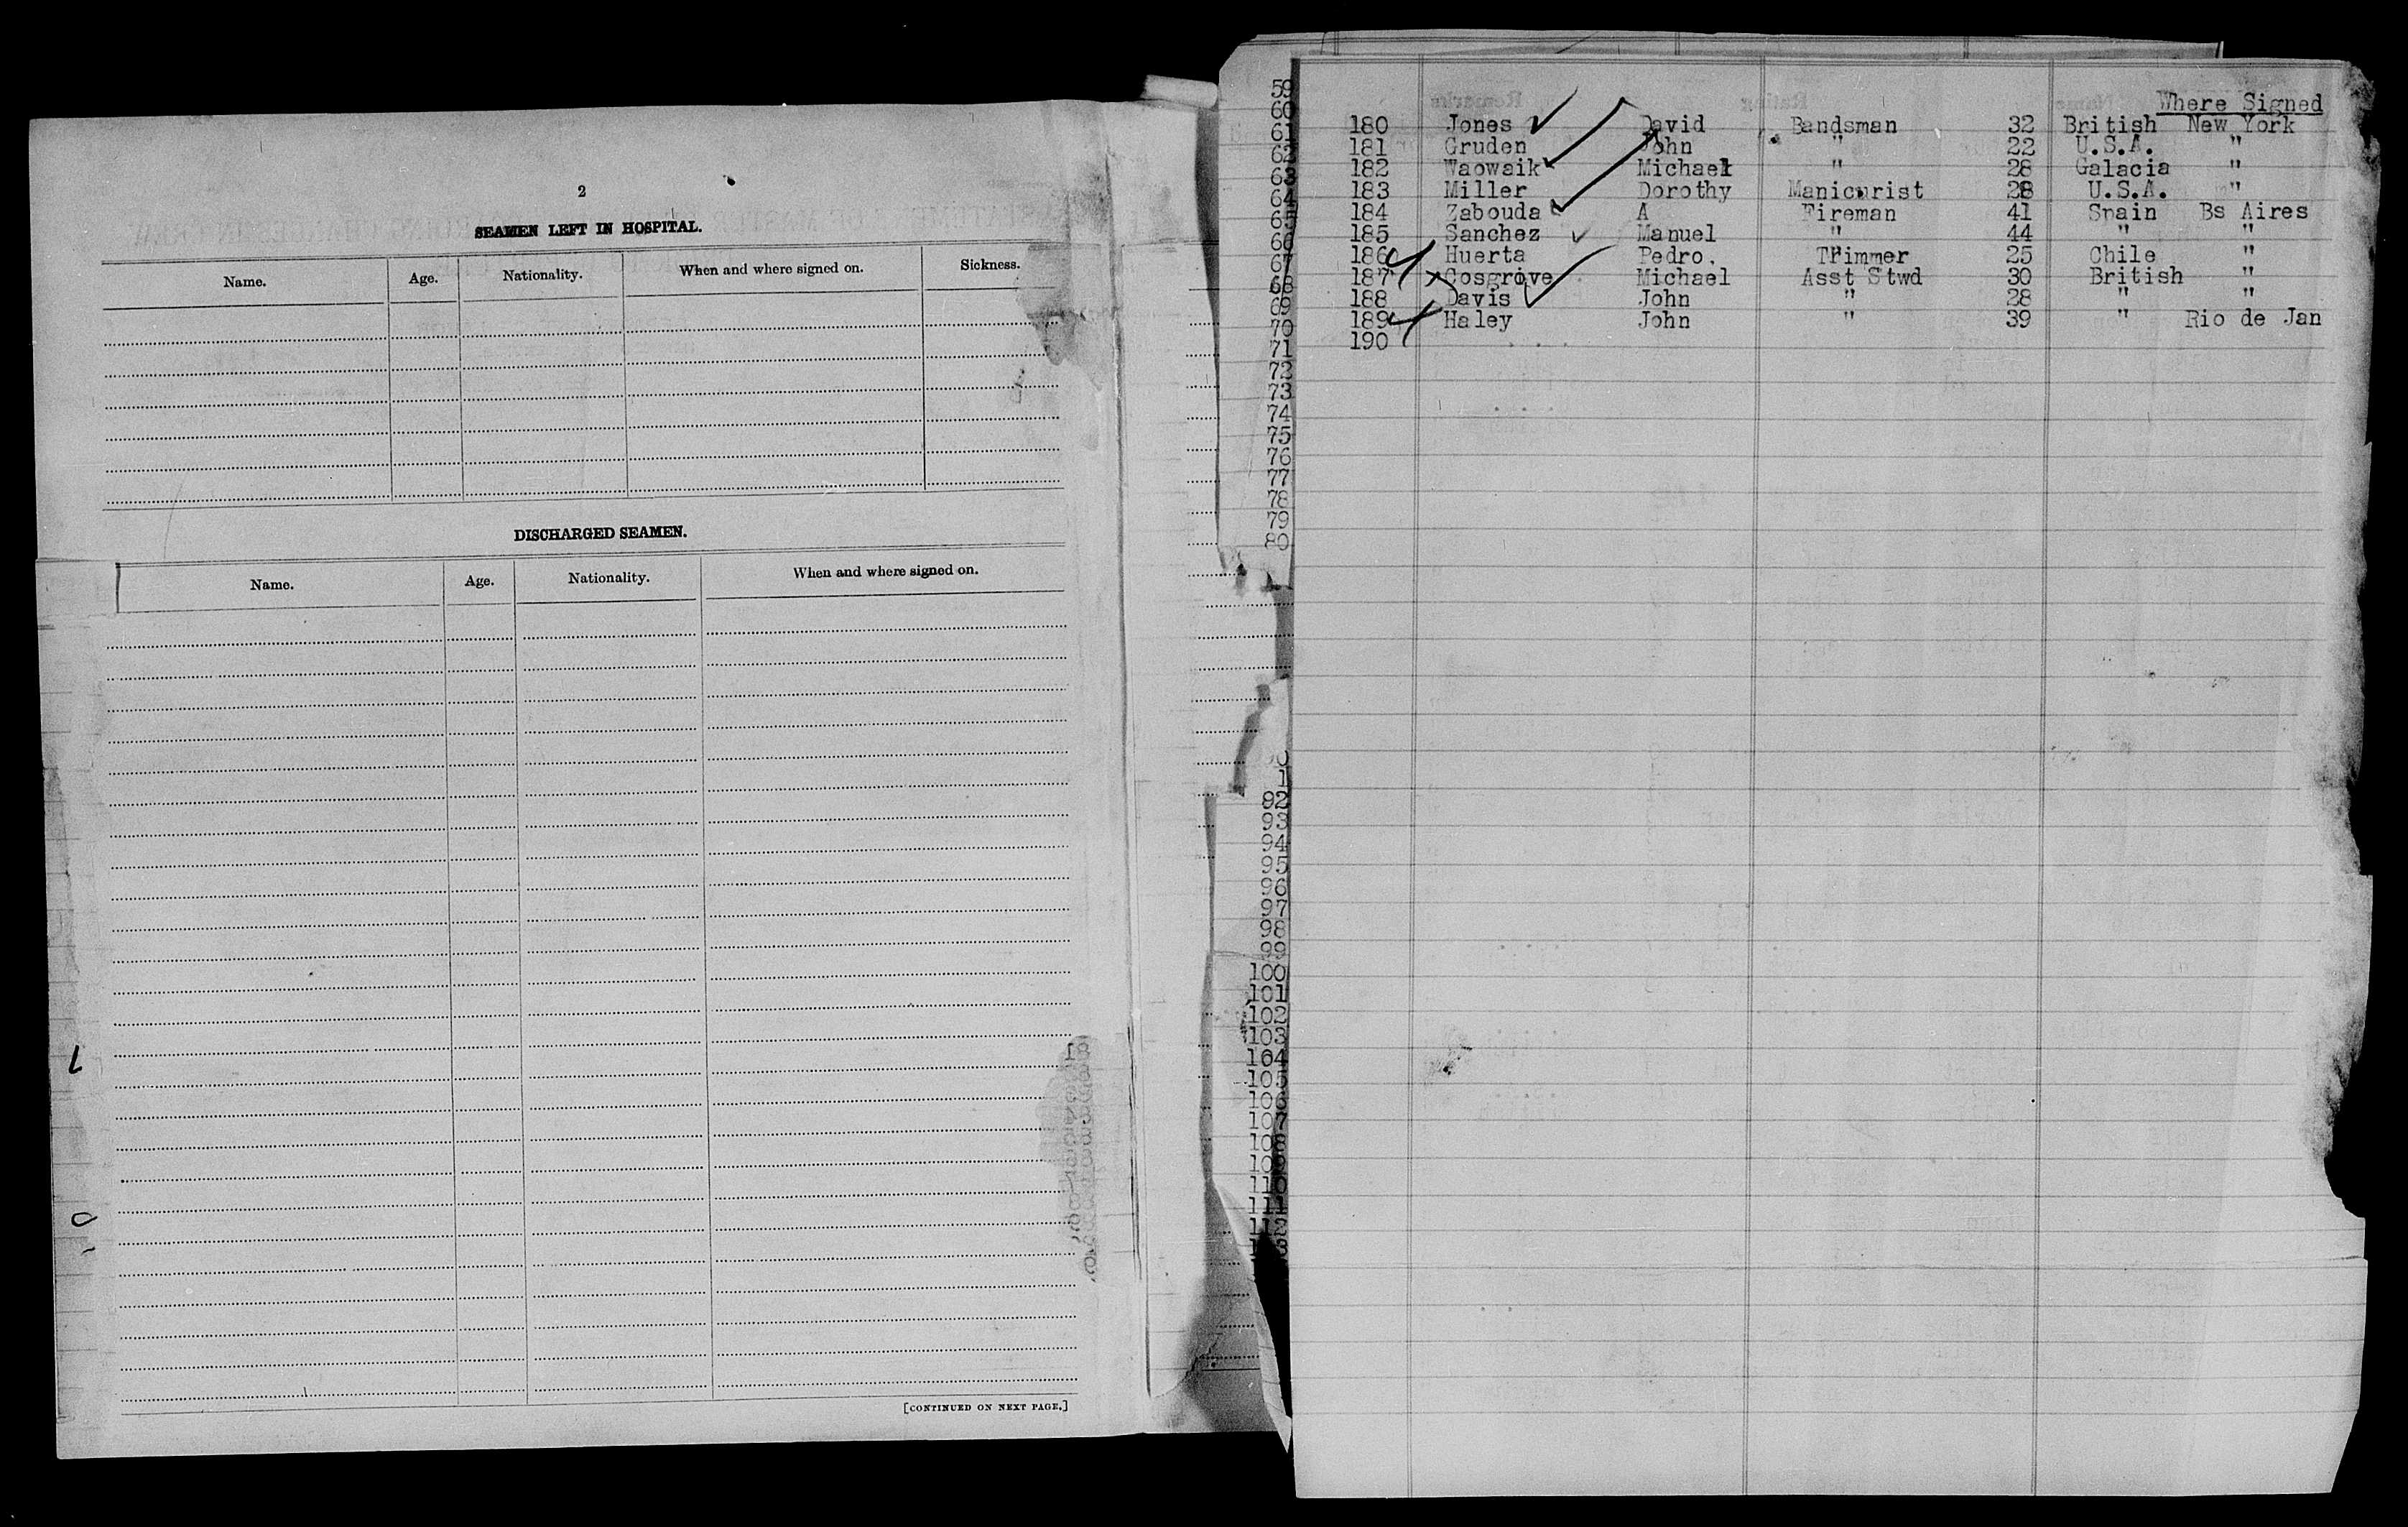 2
SEAMEN LEFT IN HOSPITAL.
Name. Age. Nationality. When and where signed on. Sickness.
DISCHARGED SEAMEN.
Name. Age. Nationality. When and where signed on.
[CONTINUED ON NEXT PAGE.]
59
60
61
62
63
64
65
66
67
68
69
70
71
72
73
74
75
76
77
78
79
80
92
93
94
95
96
97
98
99
100
101
102
103
104
105
106
107
108
109
110
111
112
Where Signed
180 Jones David Bandsman 32 British New York
181 Gruden John " 22 U.S.A. "
182 Waowaik Michael " 28 Galacia "
183 Miller Dorothy Manicurist 28 U.S.A. "
184 Zabouda A Fireman 41 Spain Bs Aires
185 Sanchez Manuel " 44 " "
186 Huerta Pedro. Trimmer 25 Chile "
187 Cosgrove Michael Asst Stwd 30 British "
188 Davis John " 28 " "
189 Haley John " 39 " Rio de Jan
190